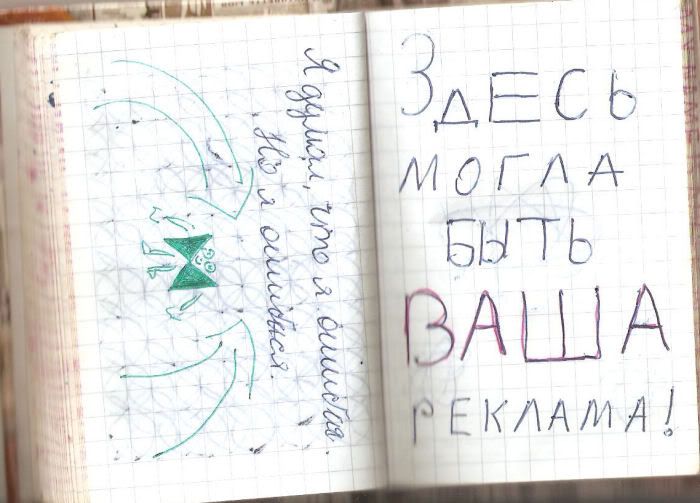 Я думал, что я ошибся.
Но я ошибался.
ЗДЕСЬ
МОГЛА
БЫТЬ
ВАША
РЕКЛАМА!